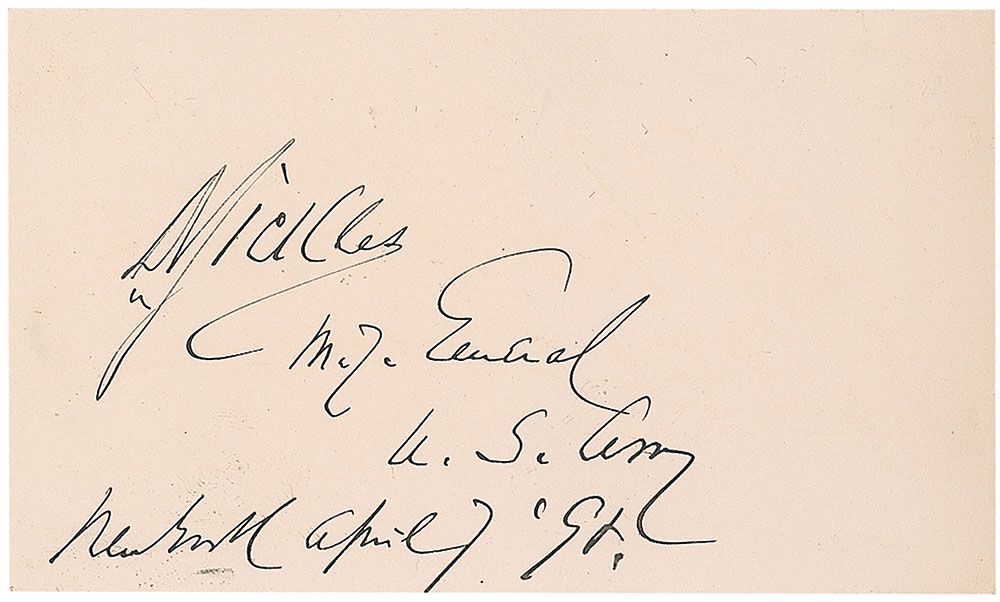 D Sickles
M.J. General
U. S. Army
New York April 7